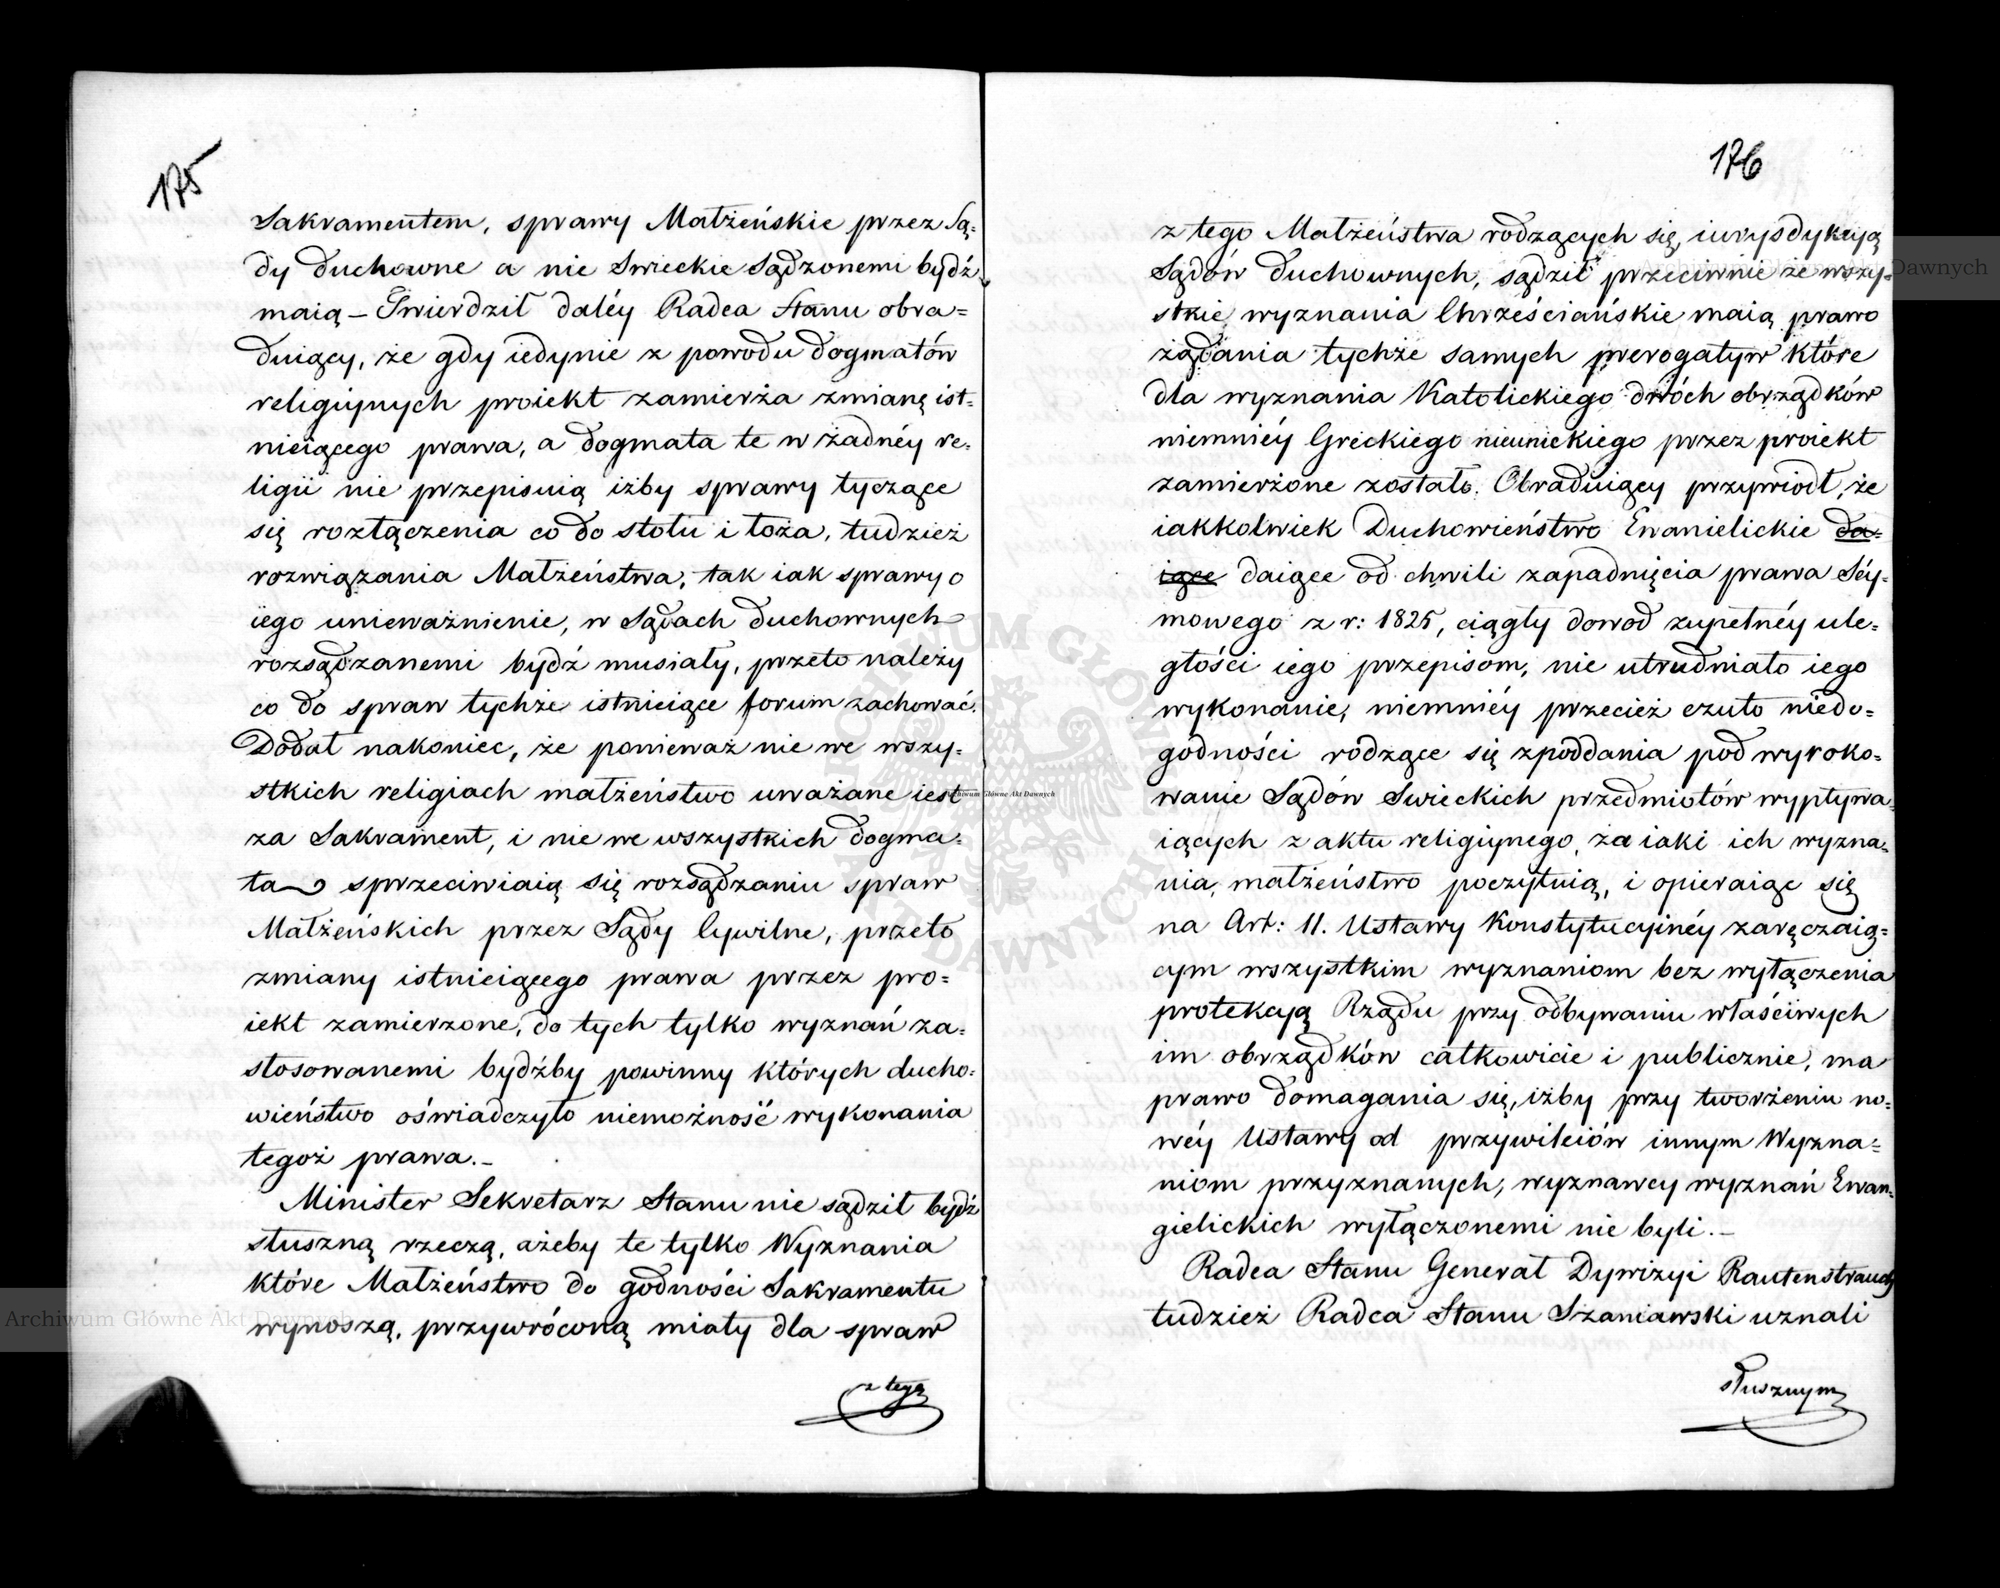 175
Sakramentem, sprawy Małżeńskie przez Są-
dy duchowne a nie Swieckie Sądzonemi bydź
maią – Twierdził daléy Radca Stanu obra-
duiący, że gdy iedynie z powodu dogmatów
religiynych proiekt zamierża zmianę ist-
nieiącego prawa, a dogmata te w żadnéy re-
ligii nie przepisuią iżby sprawy tyczące
się rozłączenia co do stołu i łoża, tudzież
rozwiązania Małżeństwa, tak iak sprawy o
iego unieważnienie, w Sądach duchownych
rozsądzanemi bydź musiały, przeto należy
co do spraw tychże istnieiące forum zachować.
Dodał nakoniec, że ponieważ nie we wszy-
stkich religiach małżeństwo uważane iest
za Sakrament, i nie we wszystkich dogma-
ta sprzeciwiaią się rozsądzaniu spraw
Małżeńskich przez Sądy Cywilne, przeto
zmiany istnieiącego prawa przez pro-
iekt zamierzone, do tych tylko wyznań za-
stosowanemi bydźby powinny których ducho-
wieństwo oświadczyło niemożność wykonania
tegoż prawa. –
Minister Sekretarz Stanu nie sądził bydź
słuszną rzeczą, ażeby te tylko Wyznania
które Małżeństwo do godności Sakramentu
wynoszą, przywróconą miały dla spraw
z tego
176
z tego Małżeństwa rodzących się, iurysdykcyą
Sądów duchownych, sądził przeciwnie że wszy-
stkie wyznania Chrześciańskie maią prawo
żądania tychże samych prerogatyw które
dla wyznania Katolickiego dwóch obrządków
niemniéy Greckiego nieunickiego przez proiekt
zamierżone zostało. Obraduiący przywiodł, że
iakkolwiek Duchowieństwo Ewanielickie da-
iące daiące od chwili zapadnięcia prawa Séy-
mowego z r: 1825, ciągły dowod zupełnéy ule-
głości iego przepisom, nie utrudniało iego
wykonanie, niemniéy przecież czuło niedo-
godności rodzące się z poddania pod wyroko-
wanie Sądów Swieckich przedmiotów wypływa-
iących z aktu religiynego, za iaki ich wyzna-
nia, małżeństwo poczytuią, i opieraiąc się
na Art: 11. Ustawy Konstytucyinéy zaręczaią-
cym wszystkim wyznaniom bez wyłączenia
protekcyą Rządu przy odbywaniu właściwych
im obrządków całkowicie i publicznie, ma
prawo domagania się, iżby przy tworżeniu no-
wéy Ustawy od przywileiów innym Wyzna-
niom przyznanych, wyznawcy wyznań Ewan-
gielickich wyłączonemi nie byli. –
Radca Stanu Generał Dywizyi Rautenstrauch
tudzież Radca Stanu Szaniawski uznali
słusznym
Archiwum Główne Akt Dawnych
Archiwum Główne Akt Dawnych
Archiwum Główne Akt Dawnych
ARCHIWUM GŁÓWNE AKT DAWNYCH